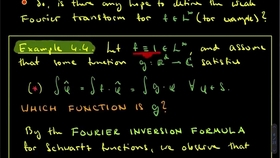 • So, is there any hope to define the weak
Fourier transform for f ∈ L^∞ (for example)?
Example 4.4. Let f ≡ 1 ∈ L^∞, and assume
that some function g: ℝ^d → ℂ satisfies
(*) ∫ φ̂ = ∫ f · φ̂ = ∫ g · φ ∀ φ ∈ S.
WHICH FUNCTION IS g?
By the FOURIER INVERSION FORMULA
for Schwartz functions, we observe that